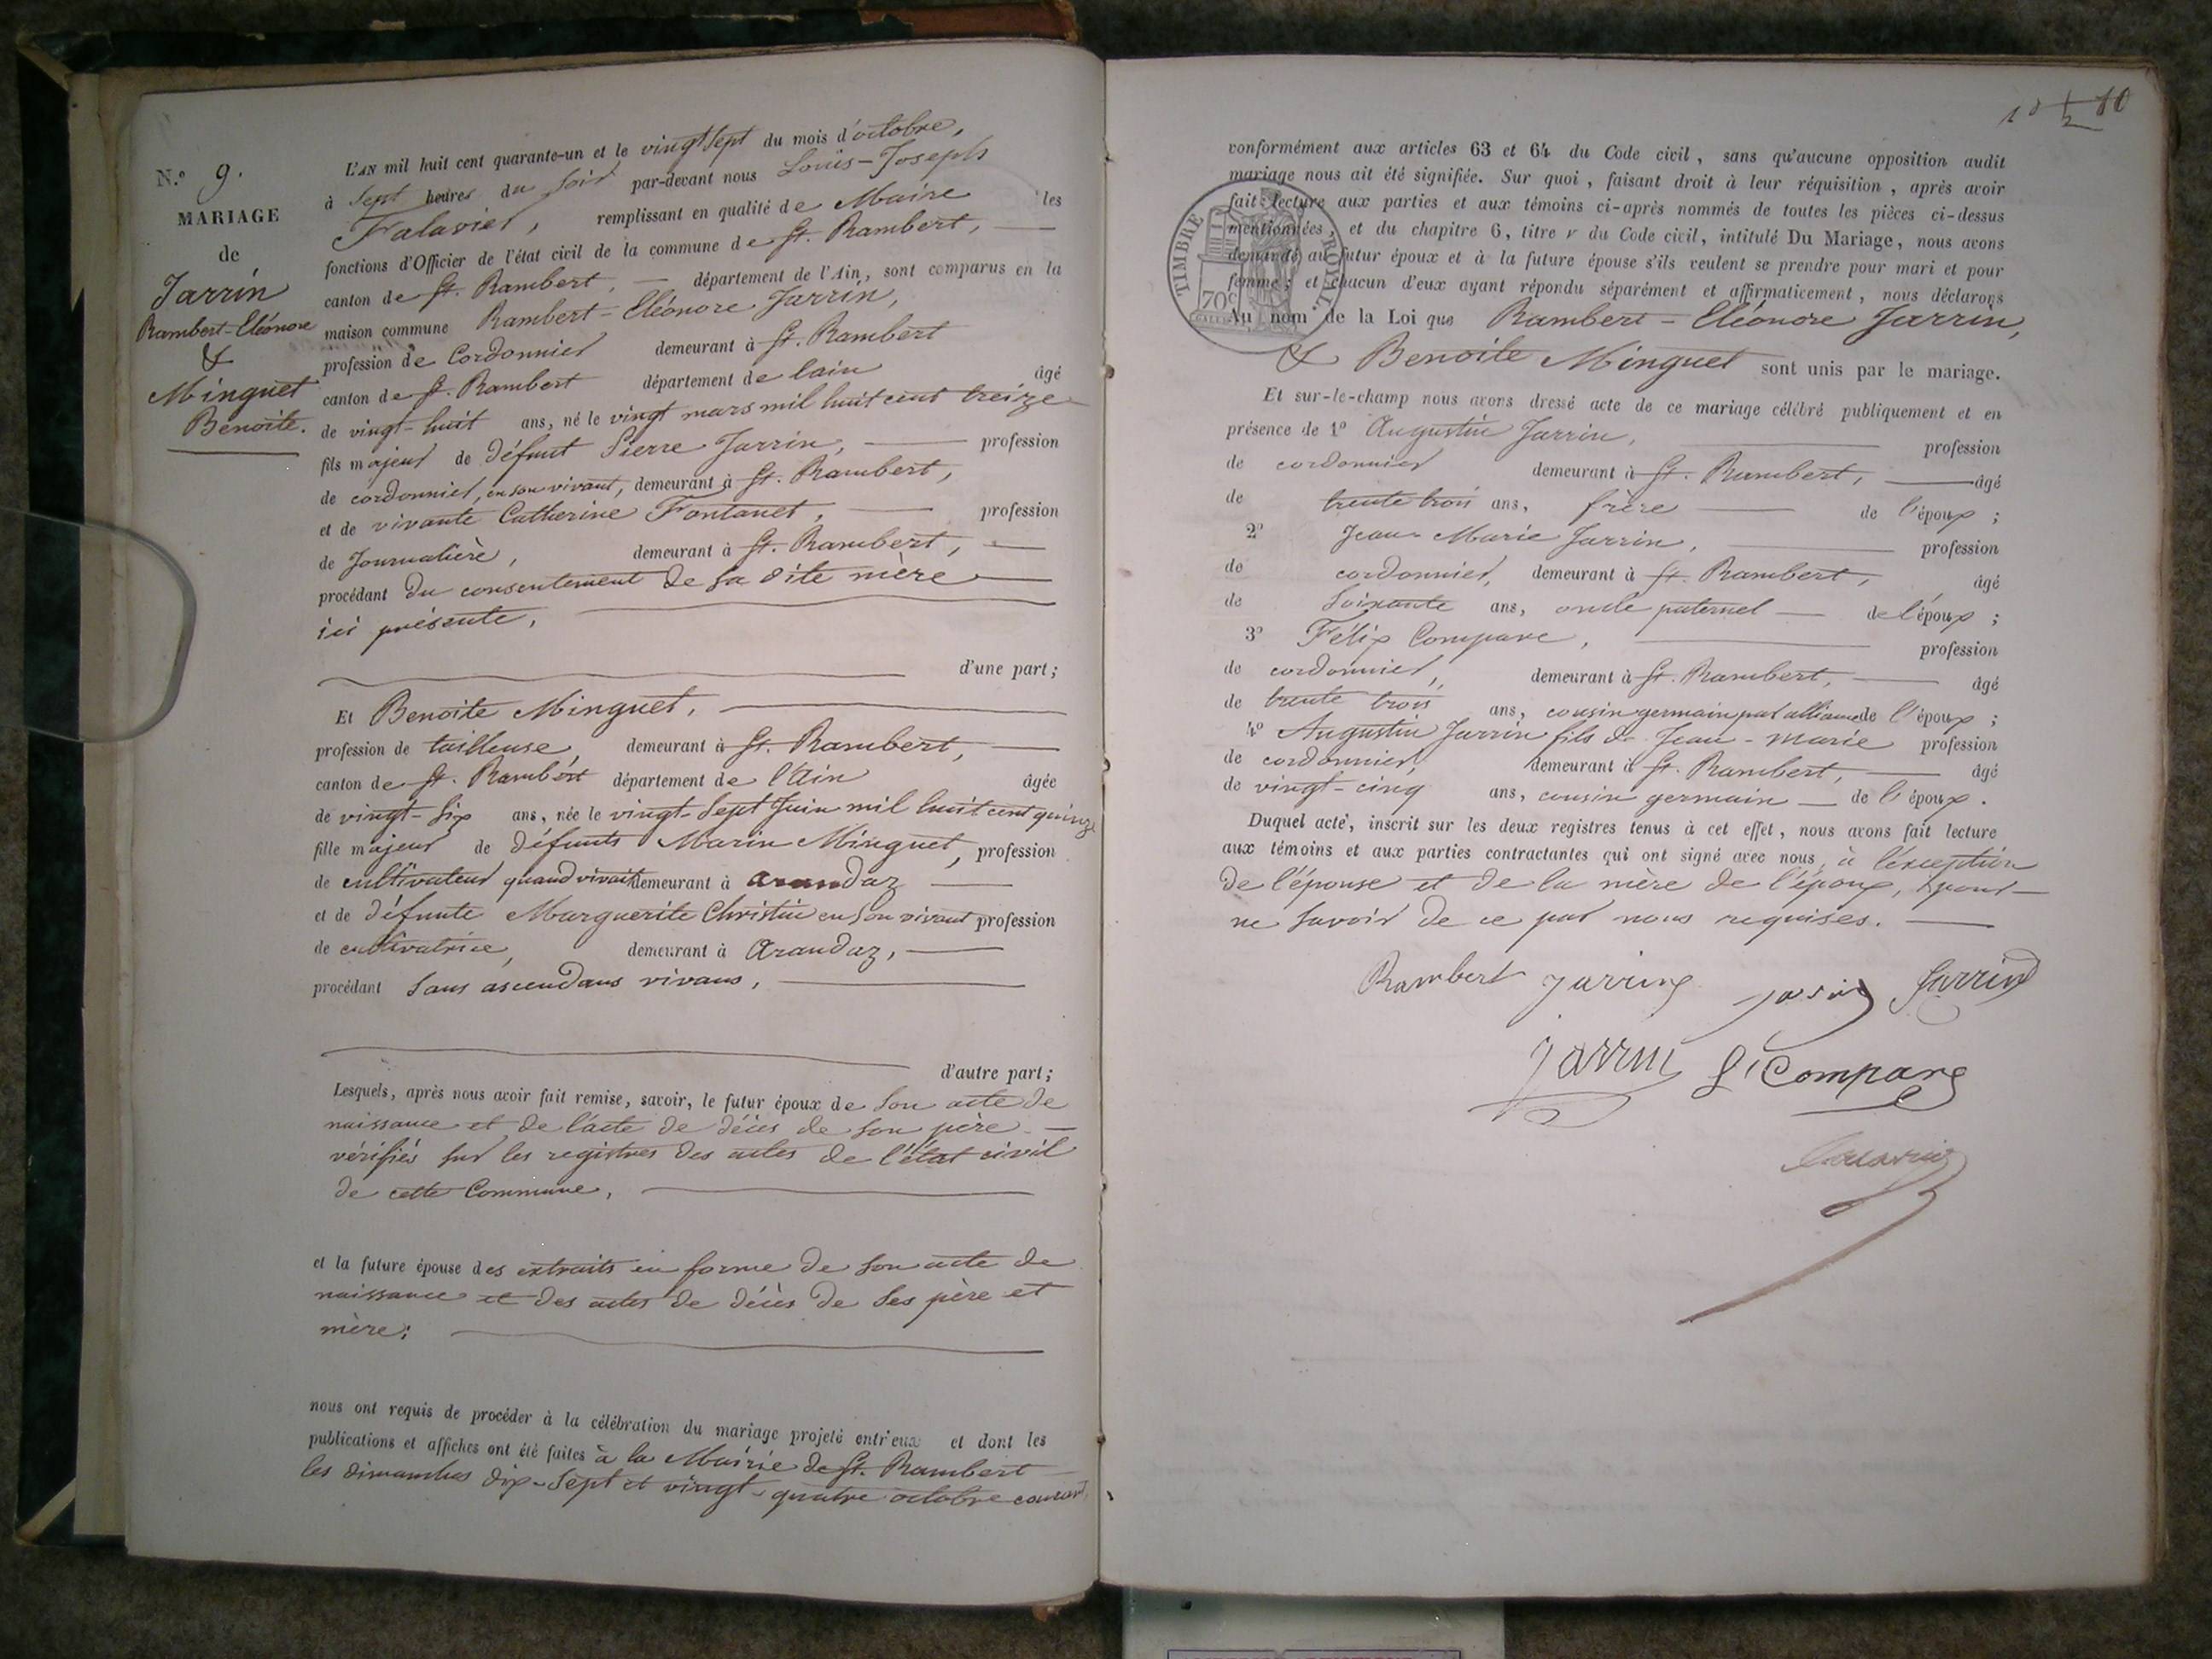 N.º 9.
MARIAGE
de
Jarrin
Rambert-Eléonore
&
Minguet
Benoite.
L'AN mil huit cent quarante-un et le vingt sept du mois d'octobre,
à sept heures du soir par-devant nous Louis-Joseph
Falavier, remplissant en qualité de Maire les
fonctions d'Officier de l'état civil de la commune de St. Rambert,
canton de St. Rambert, département de l'Ain, sont comparus en la
maison commune Rambert-Eléonore Jarrin,
profession de Cordonnier demeurant à St. Rambert
canton de St. Rambert département de lain âgé
de vingt-huit ans, né le vingt mars mil huit cent treize
fils majeur de défunt Pierre Jarrin, profession
de cordonnier, en son vivant, demeurant à St. Rambert,
et de vivante Catherine Fontanet, profession
de Journalière, demeurant à St. Rambert,
procédant du consentement de sa dite mère
ici présente,
d'une part;
Et Benoite Minguet,
profession de tailleuse, demeurant à St. Rambert,
canton de St. Rambert département de l'Ain âgée
de vingt-six ans, née le vingt-sept Juin mil huit cent quinze
fille majeur de défunts Marin Minguet, profession
de cultivateur quand vivait demeurant à arandaz
et de défunte Marguerite Christin en son vivant profession
de cultivatrice, demeurant à Arandaz,
procédant sans ascendans vivans,
d'autre part;
Lesquels, après nous avoir fait remise, savoir, le futur époux de son acte de
naissance et de l'acte de décès de son père
vérifiés sur les registres des actes de l'état civil
de cette Commune,
et la future épouse des extraits en forme de son acte de
naissance et des actes de décès de ses père et
mère;
nous ont requis de procéder à la célébration du mariage projeté entr'eux et dont les
publications et affiches ont été faites à la Mairie de St. Rambert
les dimanches dix-sept et vingt-quatre octobre courant,
10 80
conformément aux articles 63 et 64 du Code civil, sans qu'aucune opposition audit
mariage nous ait été signifiée. Sur quoi, faisant droit à leur réquisition, après avoir
fait lecture aux parties et aux témoins ci-après nommés de toutes les pièces ci-dessus
mentionnées, et du chapitre 6, titre V du Code civil, intitulé Du Mariage, nous avons
demandé au futur époux et à la future épouse s'ils veulent se prendre pour mari et pour
femme; et chacun d'eux ayant répondu séparément et affirmativement, nous déclarons
Au nom de la Loi que Rambert-Eléonore Jarrin,
& Benoite Minguet sont unis par le mariage.
TIMBRE ROYAL
70c
Et sur-le-champ nous avons dressé acte de ce mariage célébré publiquement et en
présence de 1º Augustin Jarrin, profession
de cordonnier demeurant à St. Rambert, âgé
de trente trois ans, frère de l'époux;
2º Jean-Marie Jarrin, profession
de cordonnier, demeurant à St. Rambert, âgé
de soixante ans, oncle paternel de l'époux;
3º Félix Compare, profession
de cordonnier, demeurant à St. Rambert, âgé
de trente trois ans, cousin germain par alliance de l'époux;
4º Augustin Jarrin fils de Jean-Marie profession
de cordonnier, demeurant à St. Rambert, âgé
de vingt-cinq ans, cousin germain de l'époux.
Duquel acte, inscrit sur les deux registres tenus à cet effet, nous avons fait lecture
aux témoins et aux parties contractantes qui ont signé avec nous, à l'exception
de l'épouse et de la mère de l'époux, pour
ne savoir de ce par nous requises.
Rambert Jarring Jarrin
Jarrin Compare